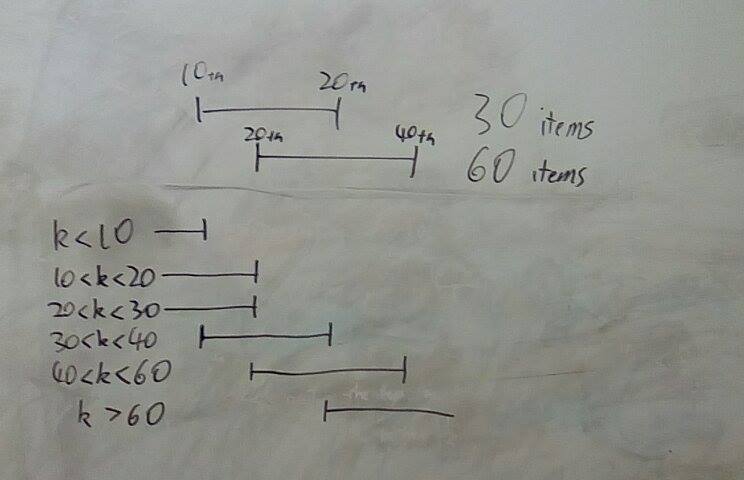 10th 20th 30 items
20th 40th 60 items
k<10
10<k<20
20<k<30
30<k<40
40<k<60
k>60